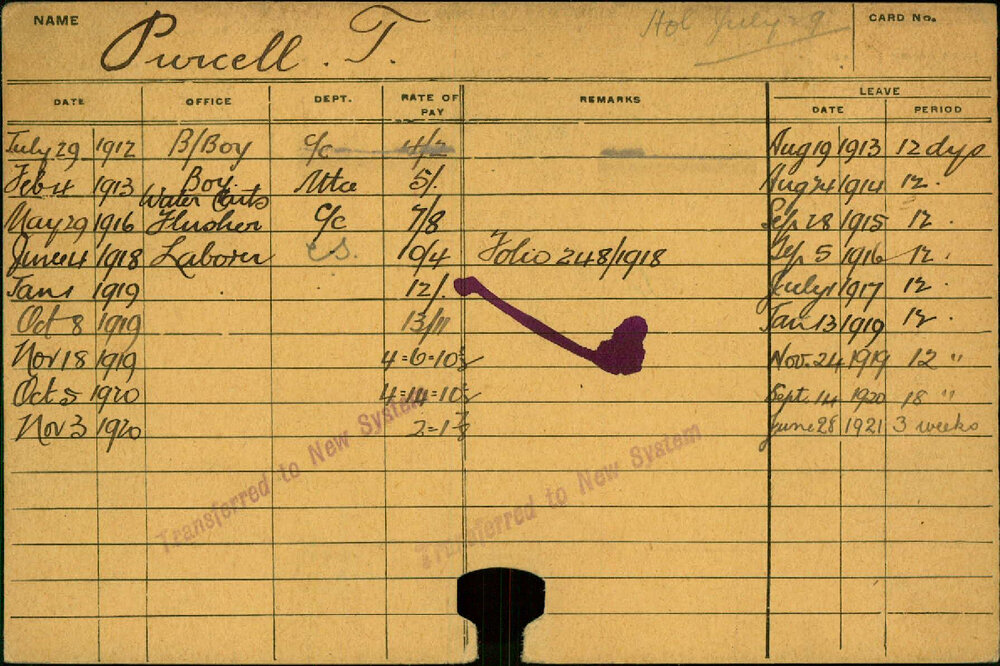 NAME Purcell. T. Hol July 29 CARD No.
DATE OFFICE DEPT. RATE OF PAY REMARKS LEAVE
DATE PERIOD
July 29 1912 B/Boy C/c 4/2 Aug 19 1913 12 dys
Feb 4 1913 Boy Mtce 5/. Aug 24 1914 12 .
Water Carts
May 29 1916 Flusher C/c 7/8 Sep 28 1915 12 .
June 4 1918 Laborer C.S. 10/4 Folio 248/1918 Sep 5 1916 12 .
Jan 1 1919 12/. July 1 1917 12 .
Oct 8 1919 13/11 Jan 13 1919 12 .
Nov 18 1919 4=6=10½ Nov. 24 1919 12 "
Oct 5 1920 4=14=10½ Sept. 14 1920 18 "
Nov 3 1920 2=1 June 28 1921 3 weeks
Transferred to New System
Transferred to New System